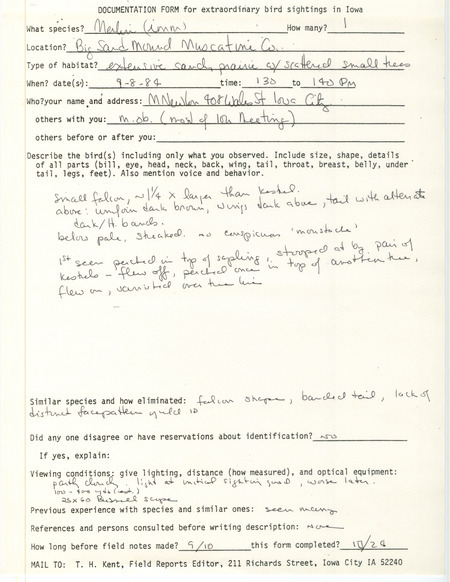 DOCUMENTATION FORM for extraordinary bird sightings in Iowa
What species? Merlin (imm) How many? 1
Location? Big Sand Mound Muscatine Co.
Type of habitat? extensive sand prairie w/ scattered small trees
When? date(s): 9-8-84 time: 130 to 140 PM
Who?your name and address: M Newlon 408 Wales St Iowa City
others with you: m.ob. (most of IOU Meeting)
others before or after you:
Describe the bird(s) including only what you observed. Include size, shape, details
of all parts (bill, eye, head, neck, back, wing, tail, throat, breast, belly, under
tail, legs, feet). Also mention voice and behavior.
Small falcon, ~1¼ x larger than kestrel.
above: uniform dark brown, wings dark above, tail with alternate
dark/lt. bands.
below pale, streaked. no conspicuous 'moustache'
1st seen perched in top of sapling, stooped at by pair of
kestrels - flew off, perched once in top of another tree,
flew on, vanished over tree line
Similar species and how eliminated: falcon shape, banded tail, lack of
distinct face pattern yield ID
Did any one disagree or have reservations about identification? no
If yes, explain:
Viewing conditions: give lighting, distance (how measured), and optical equipment:
partly cloudy. light at initial sighting good, worse later.
100-400 yds (est.)
25x60 Bushnell scope
Previous experience with species and similar ones: seen many
References and persons consulted before writing description: none
How long before field notes made? 9/10 this form completed? 10/28
MAIL TO: T. H. Kent, Field Reports Editor, 211 Richards Street, Iowa City IA 52240